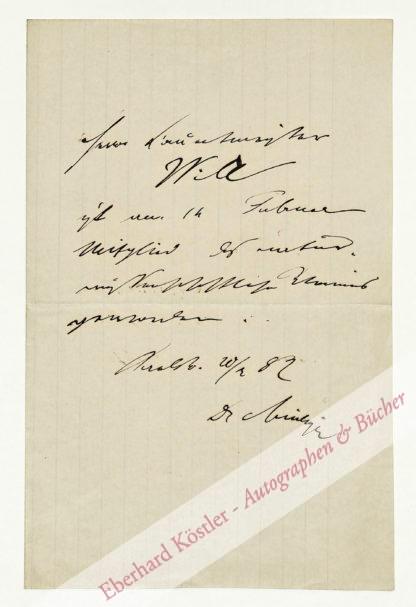 Herr Baumeister
Will
ist am 14 Februar
Mitglied des natur-
wissenschaftlichen Vereins
geworden.
20/2 82
Dr
Eberhard Köstler - Autographen & Bücher